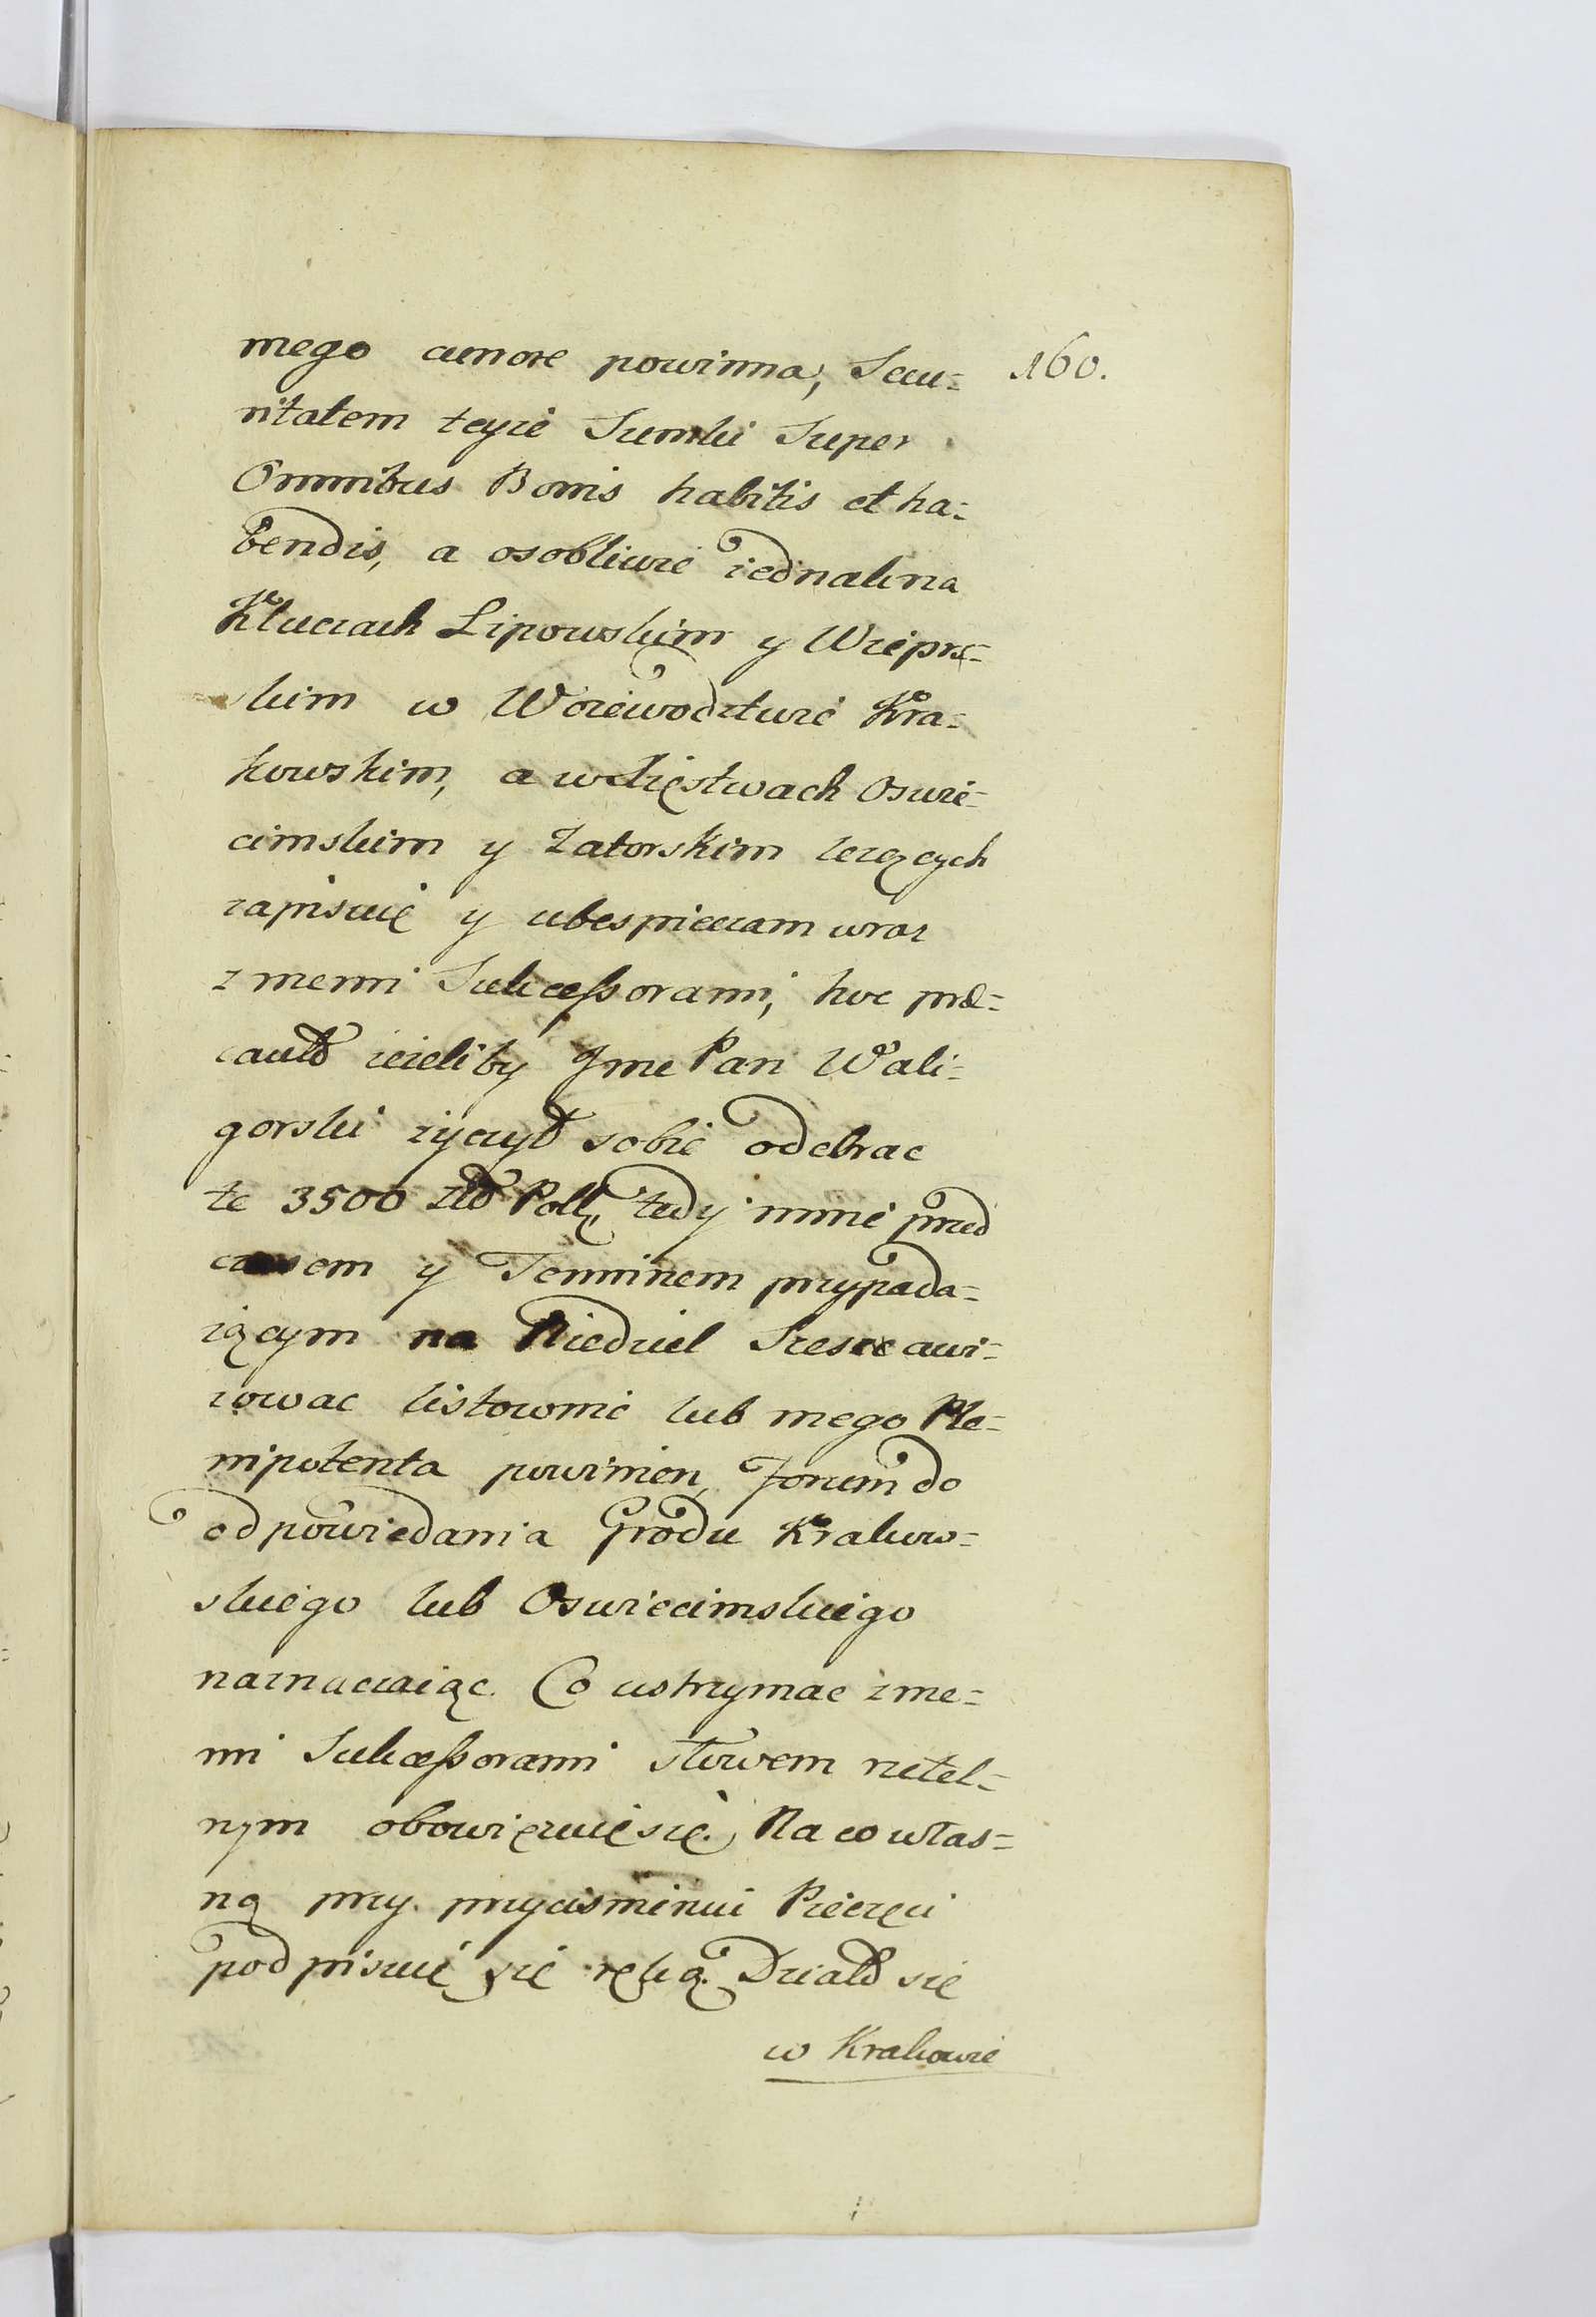 mego amore powinna, Secu= 160.
ritatem teyze Sumki Super
Omnibus Bonis habitis et ha=
bendis, a osobliwie iednak na
Kluczach Lipowskim y Wieprs=
skim w Woiewodztwie Kra=
kowskim, a w Xięstwach Oswie=
cimskim y Zatorskim lezących
zapisuię y ubespieczam wraz
z memi Sukcessorami, hoc præ=
caulo iezeliby Jmc Pan Wali=
gorski zyczył sobie odebrac
te 3500 Zło Polł, tedy mnie przed
czasem y Terminem przypada=
iącym na Niedziel Szesc awi=
zowac listownie lub mego Ple=
nipotenta powinien, Forum do
odpowiedania Grodu Krakow=
skiego lub Oswiecimskiego
naznaczaiąc. Co ustrzymac z me=
mi Sukcessorami słowem rzetel=
nym obowięzuię się. Na co włas=
ną przy przycisnieniu Pieczęci
podpisuię się ręką. Działo się
w Krakowie